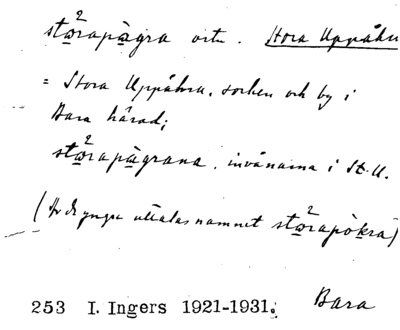 stœ̀²rapàgra ortn. Stora Uppåkra
= Stora Uppåkra, socken och by i
Bara härad;
stœ̀²rapàgrana, invånarna i St. U.
(Av de yngre uttalas namnet stœ̀²rapòkra)
253 I. Ingers 1921-1931. Bara